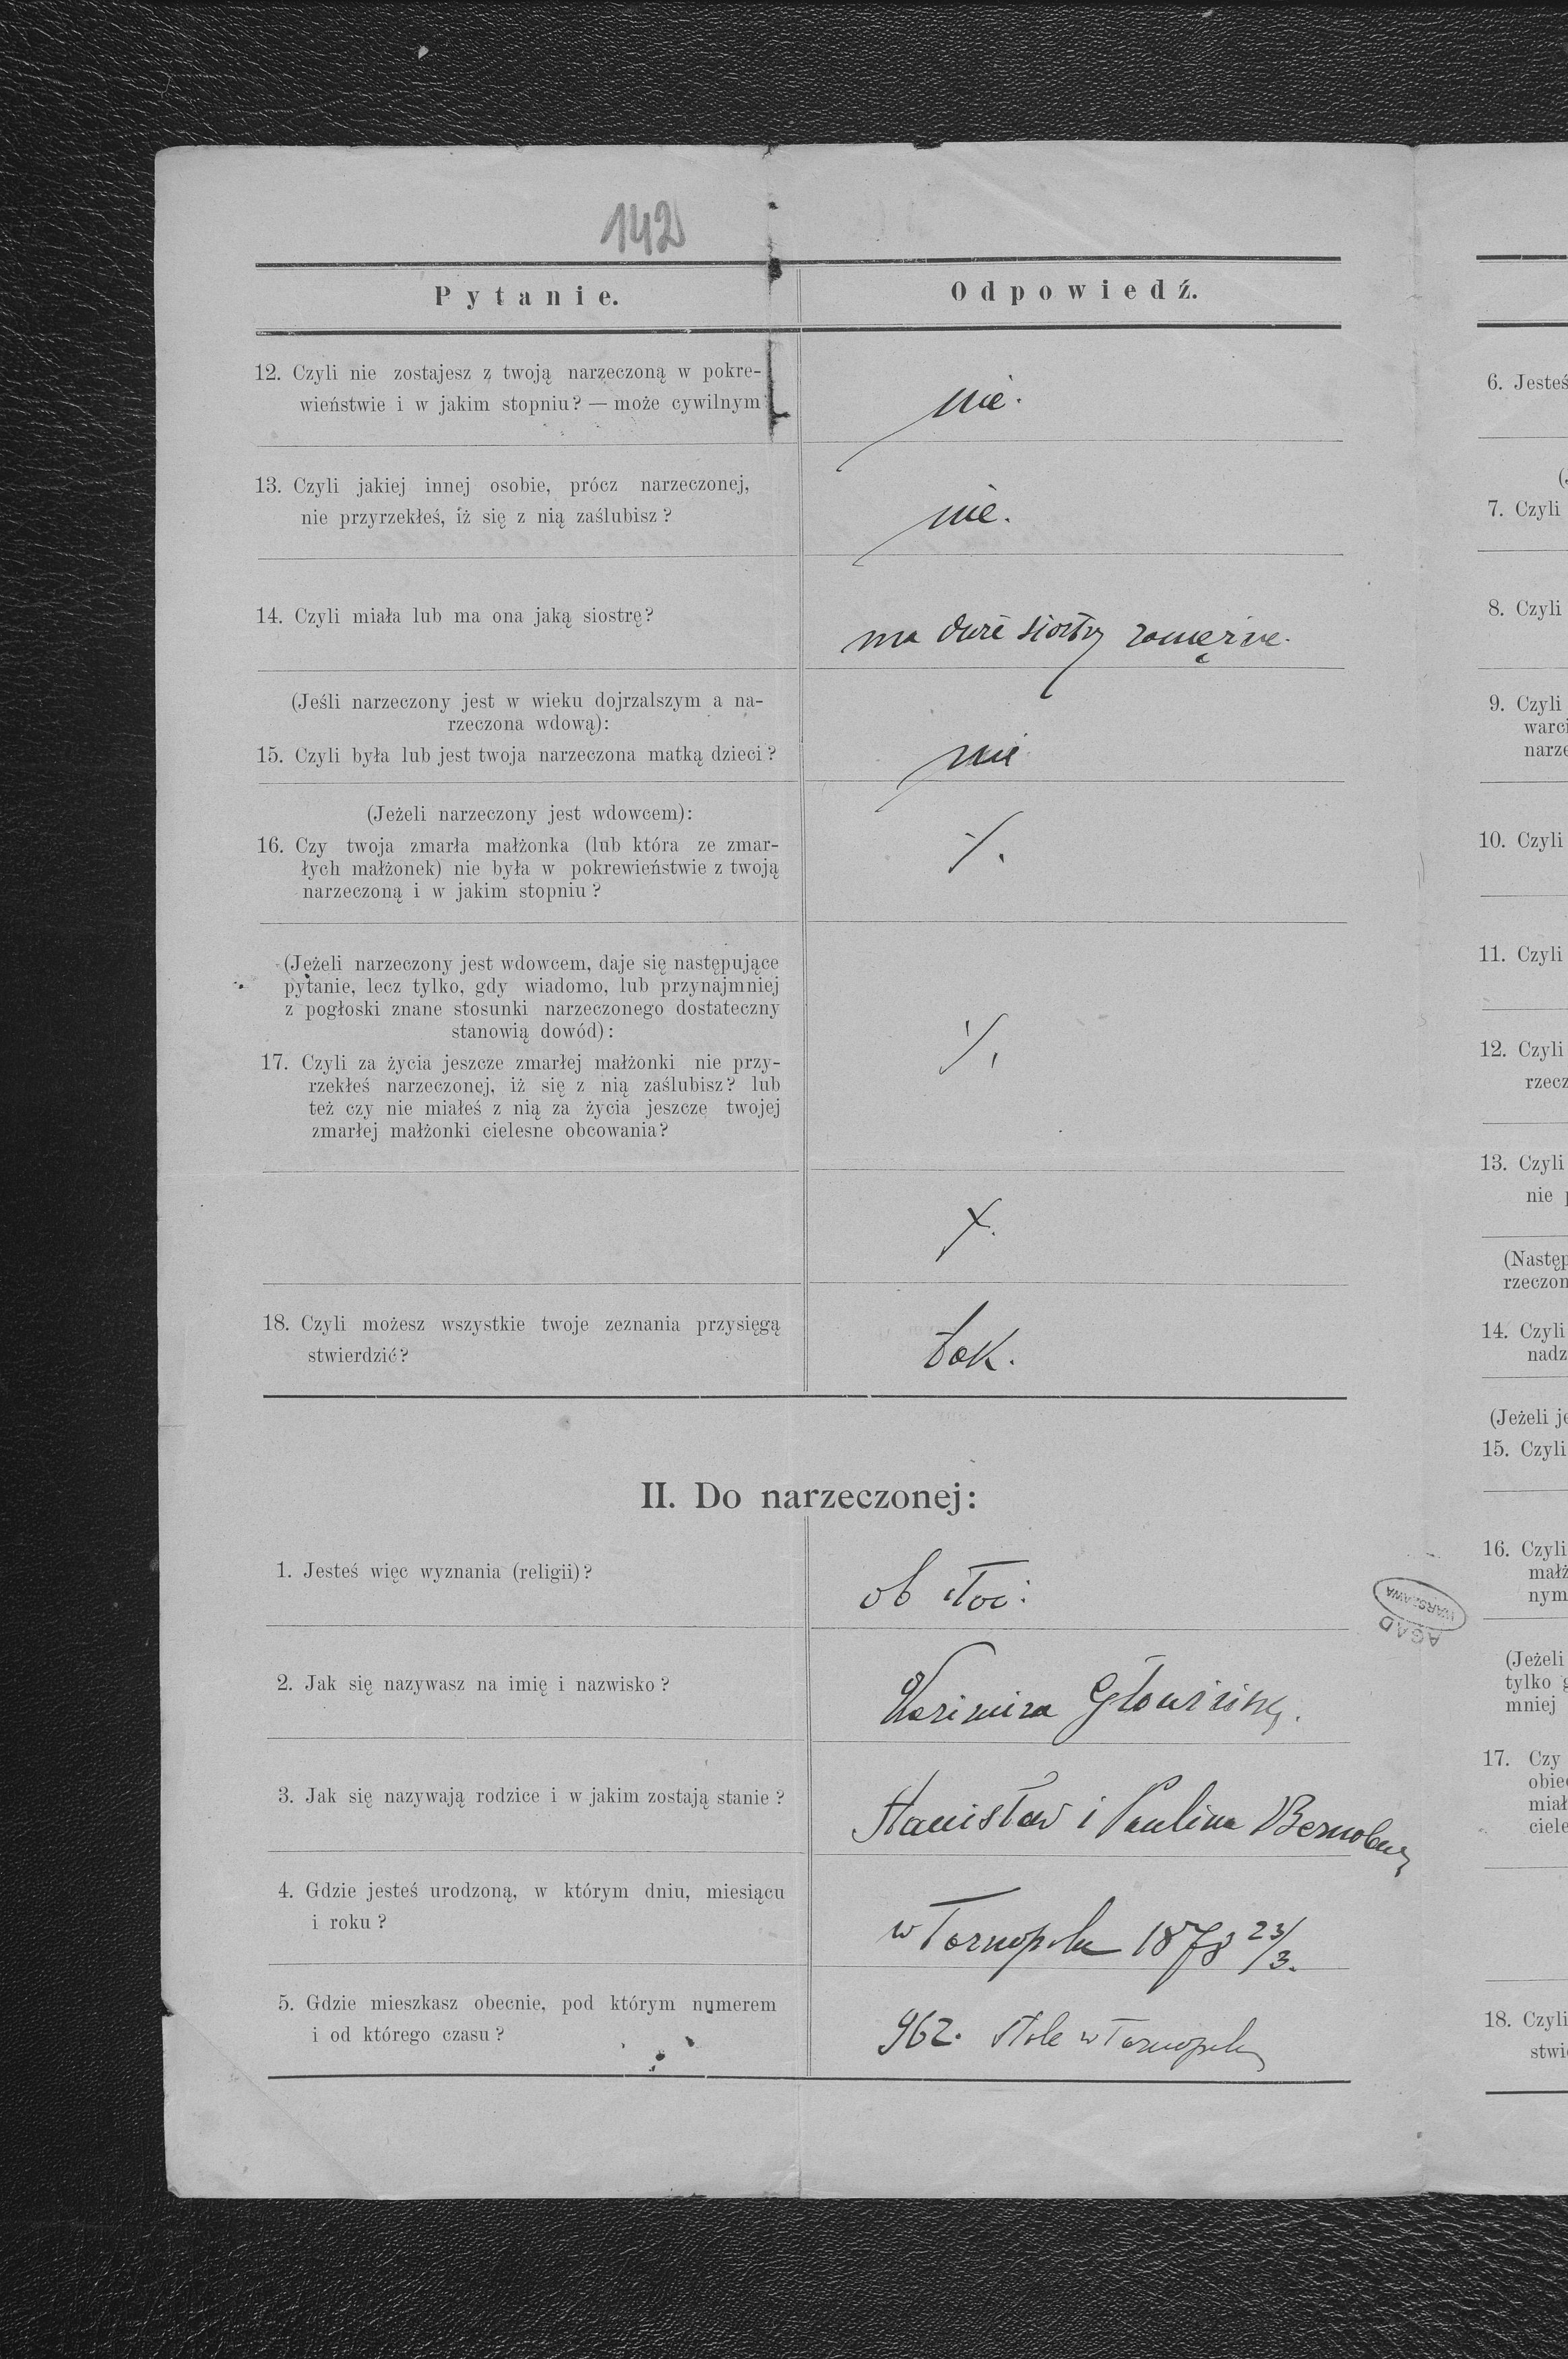 142
Pytanie.
Odpowiedź.
12. Czyli nie zostajesz z twoją narzeczoną w pokre-
wieństwie i w jakim stopniu? — może cywilnym
nie.
13. Czyli jakiej innej osobie, prócz narzeczonej,
nie przyrzekłeś, iż się z nią zaślubisz?
nie.
14. Czyli miała lub ma ona jaką siostrę?
ma dwie siostry zamężne.
(Jeśli narzeczony jest w wieku dojrzalszym a na-
rzeczona wdową):
15. Czyli była lub jest twoja narzeczona matką dzieci?
nie
(Jeżeli narzeczony jest wdowcem):
16. Czy twoja zmarła małżonka (lub która ze zmar-
łych małżonek) nie była w pokrewieństwie z twoją
narzeczoną i w jakim stopniu?
(Jeżeli narzeczony jest wdowcem, daje się następujące
pytanie, lecz tylko, gdy wiadomo, lub przynajmniej
z pogłoski znane stosunki narzeczonego dostateczny
stanowią dowód):
17. Czyli za życia jeszcze zmarłej małżonki nie przy-
rzekłeś narzeczonej, iż się z nią zaślubisz? lub
też czy nie miałeś z nią za życia jeszcze twojej
zmarłej małżonki cielesne obcowania?
18. Czyli możesz wszystkie twoje zeznania przysięgą
stwierdzić?
tak.
II. Do narzeczonej:
1. Jesteś więc wyznania (religii)?
ob łac:
2. Jak się nazywasz na imię i nazwisko?
Kazimira
3. Jak się nazywają rodzice i w jakim zostają stanie?
Stanisław i Paulina
4. Gdzie jesteś urodzoną, w którym dniu, miesiącu
i roku?
w Tarnopolu 1878 23/3.
5. Gdzie mieszkasz obecnie, pod którym numerem
i od którego czasu?
962. stale w Tarnopolu
AGAD
WARSZAWA
6. Jesteś
7. Czyli
8. Czyli
9. Czyli
warci
narze
10. Czyli
11. Czyli
12. Czyli
rzecz
13. Czyli
nie
(Następ
rzeczon
14. Czyli
nadz
(Jeżeli je
15. Czyli
16. Czyli
małż
nym
(Jeżeli
tylko g
mniej
17. Czy
obie
miał
ciele
18. Czyli
stwi